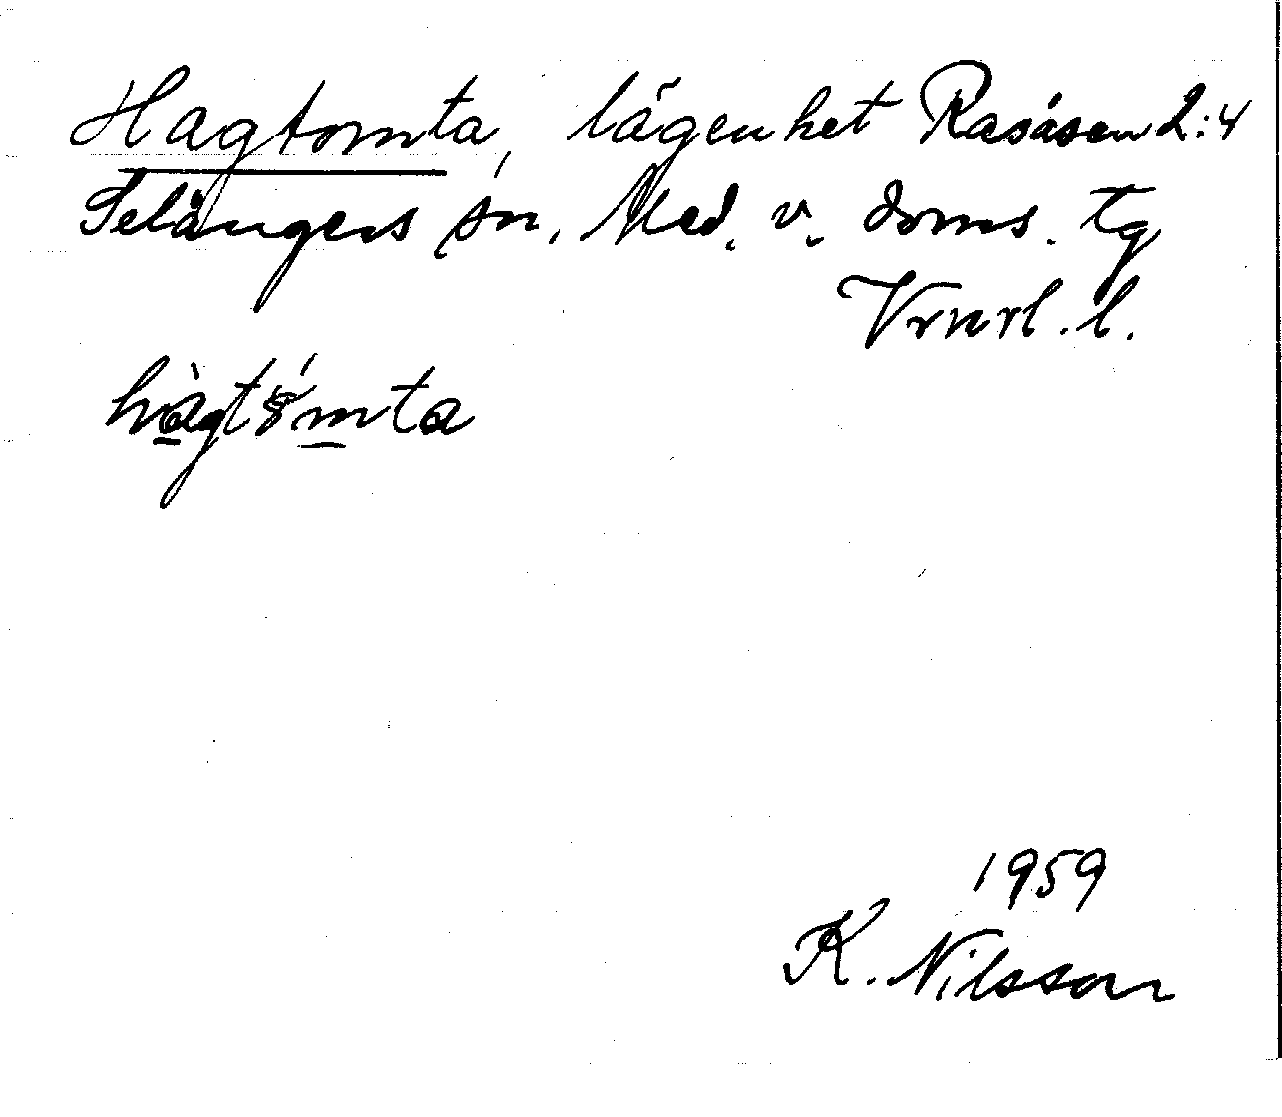 Hagtomta, lägenhet Rasåsen 2:4
Selångers sn, Med. v. doms. tg
Vrnrl. l.
hàgtómta
1959
K. Nilsson